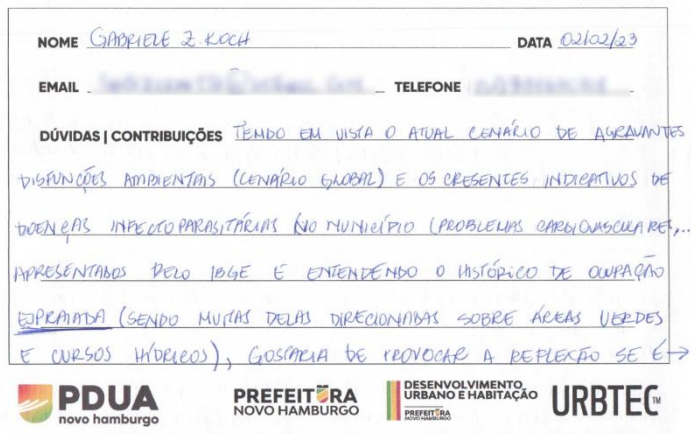 NOME GABRIELE Z. KOCH DATA 02/02/23
EMAIL TELEFONE
DÚVIDAS | CONTRIBUIÇÕES TENDO EM VISTA O ATUAL CENÁRIO DE AGRAVANTES
DISFUNÇÕES AMBIENTAIS (CENÁRIO GLOBAL) E OS CRESENTES INDICATIVOS DE
DOENÇAS INFECTOPARASITÁRIAS NO MUNICÍPIO (PROBLEMAS CARDIOVASCULARES,...
APRESENTADOS PELO IBGE E ENTENDENDO O HISTÓRICO DE OCUPAÇÃO
ESPRAIADA (SENDO MUITAS DELAS DIRECIONADAS SOBRE ÁREAS VERDES
E CURSOS HÍDRICOS), GOSTARIA DE PROVOCAR A REFLEXÃO SE É →
PDUA
novo hamburgo
PREFEITURA
NOVO HAMBURGO
DESENVOLVIMENTO
URBANO E HABITAÇÃO
PREFEITURA
NOVO HAMBURGO
URBTEC™